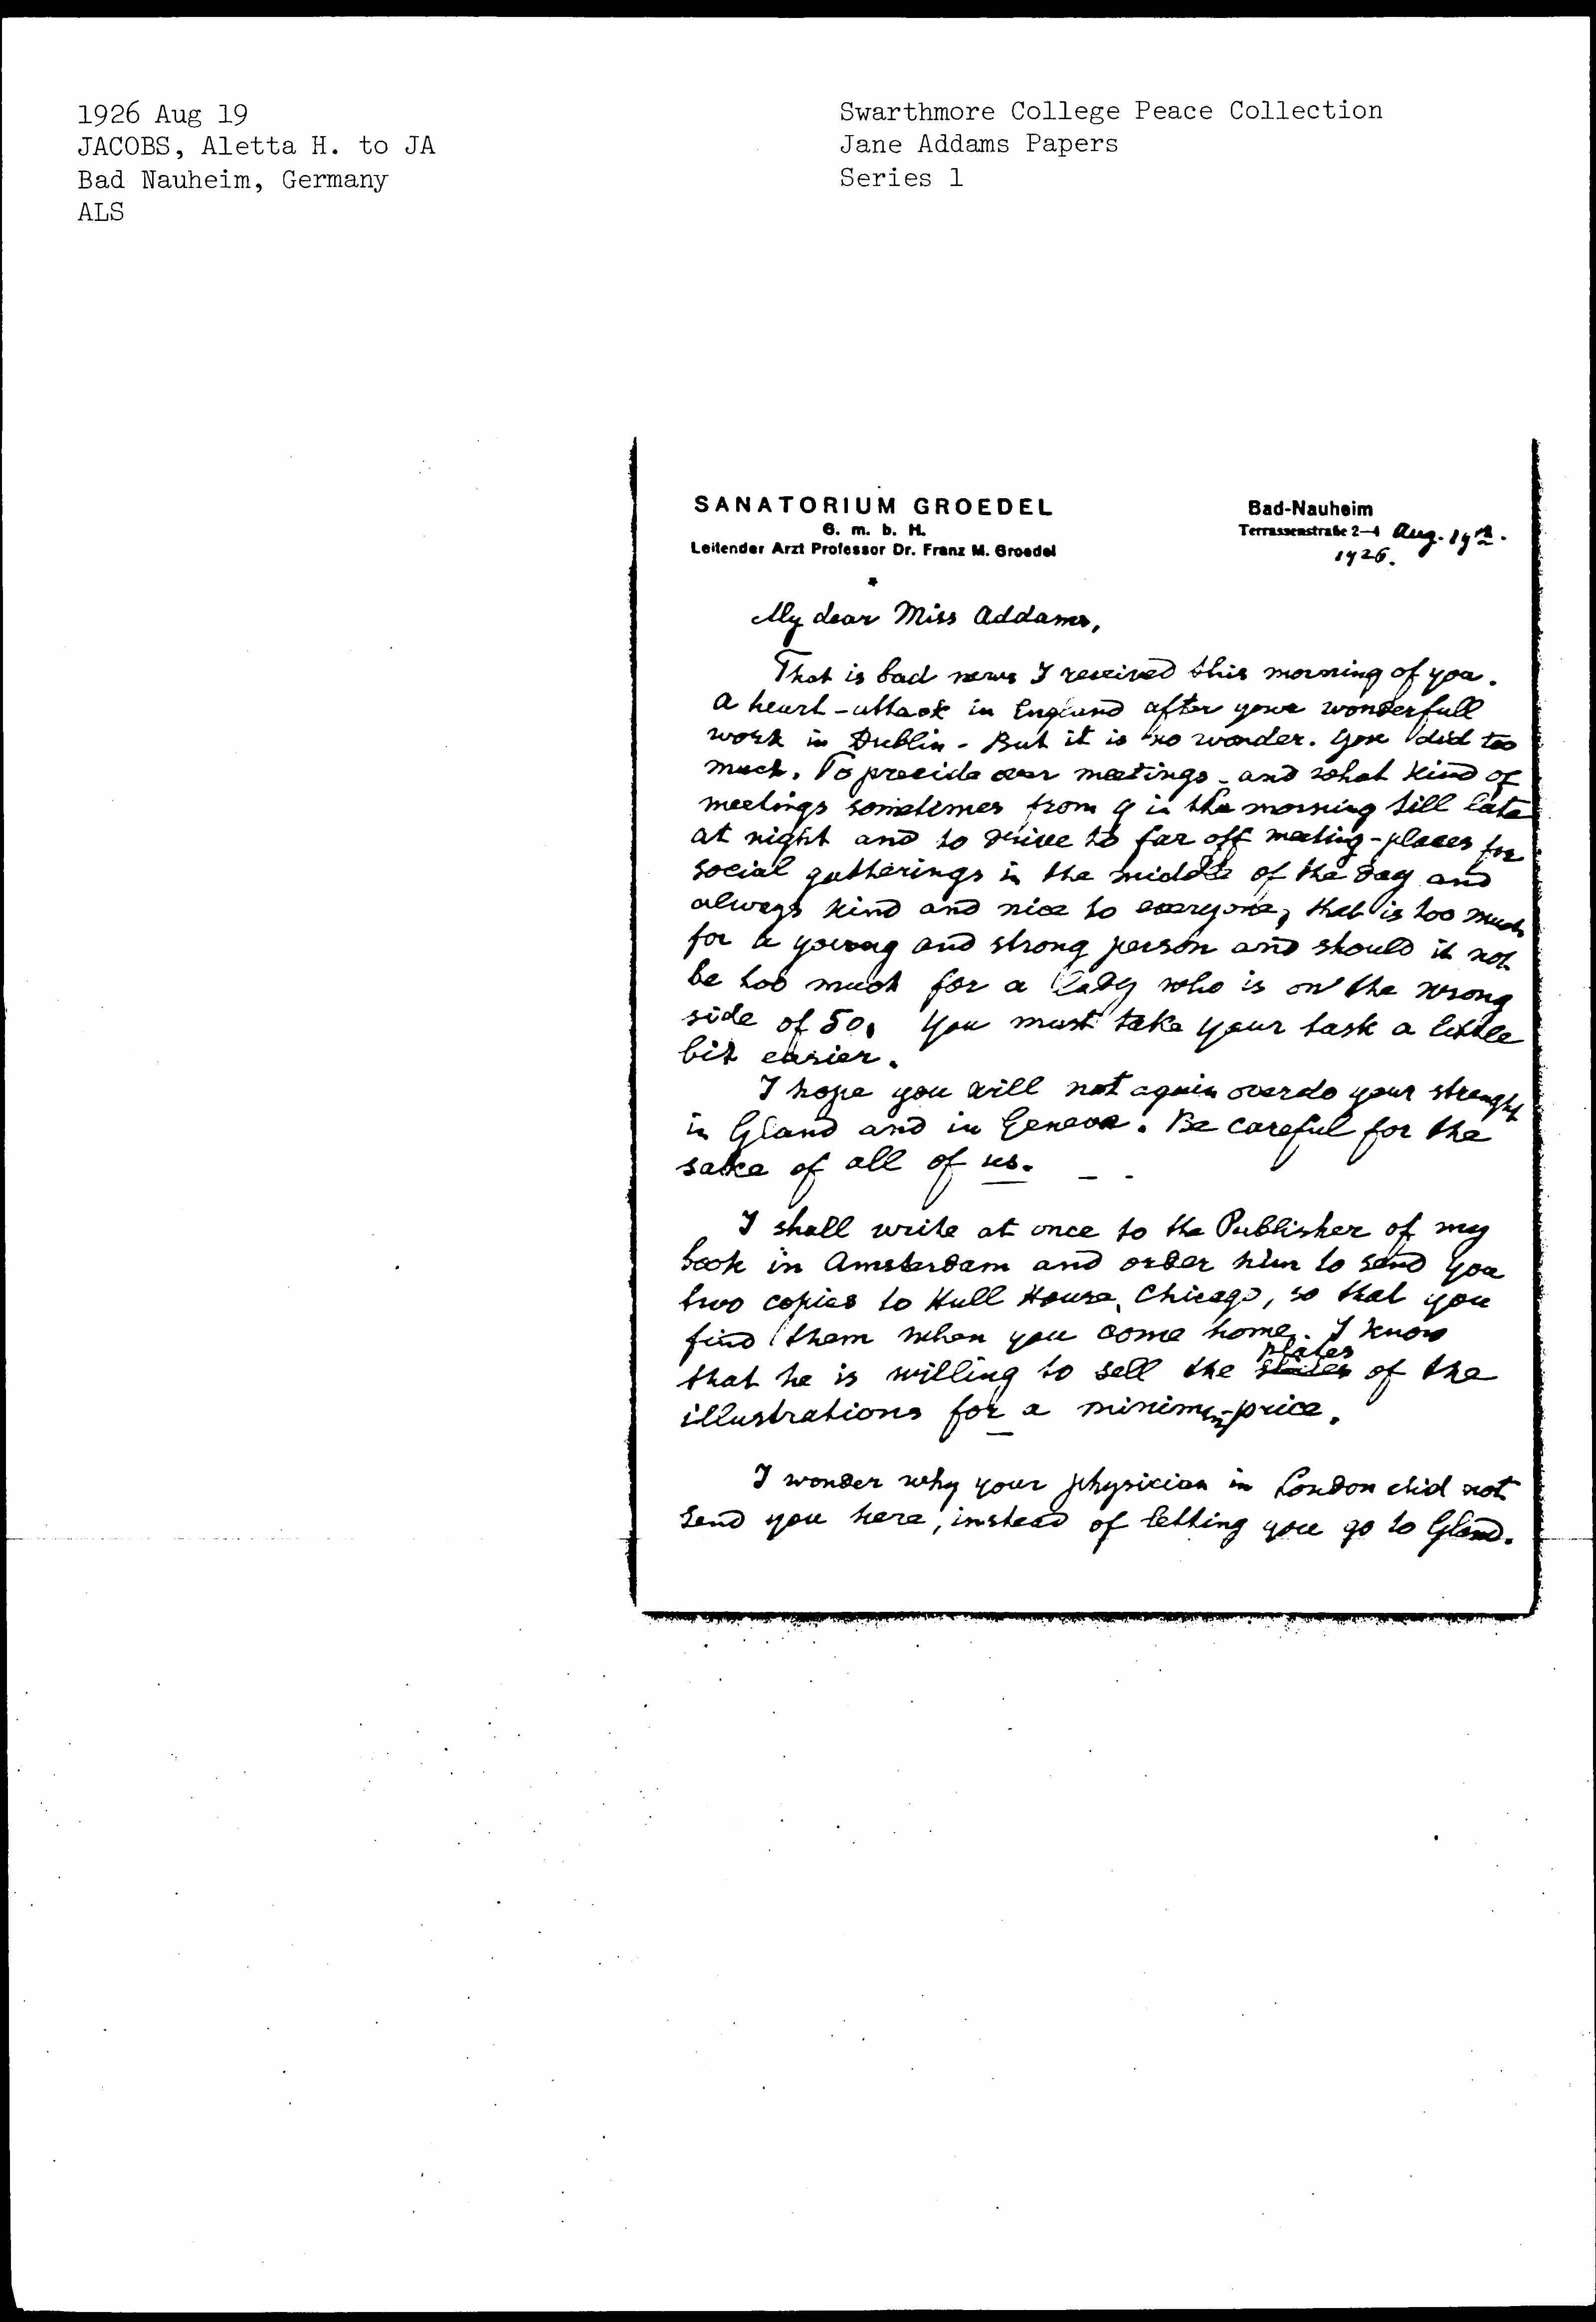 1926 Aug 19
JACOBS, Aletta H. to JA
Bad Nauheim, Germany
ALS
Swarthmore College Peace Collection
Jane Addams Papers
Series 1
SANATORIUM GROEDEL
G. m. b. H.
Leitender Arzt Professor Dr. Franz M. Groedel
Bad-Nauheim
Terrassenstraße 2—4 Aug. 19th.
1926.
My dear Miss Addams,
That is bad news I received this morning of you.
A heart-attack in England after your wonderfull
work in Dublin - But it is no wonder. You did too
much. To precide our meetings - and what kind of
meetings sometimes from 9 in the morning till late
at night and to drive to far off meeting-places for
social gatherings in the middle of the day and
always kind and nice to everyone, that is too much
for a young and strong person and should it not
be too much for a lady who is on the wrong
side of 50. You must take your task a little
bit easier.
I hope you will not again overdo your strenght
in Gland and in Geneva. Be careful for the
sake of all of us. _ -
I shall write at once to the Publisher of my
book in Amsterdam and order him to send you
two copies to Hull House, Chicago, so that you
find them when you come home. I know
plates
that he is willing to sell the slides of the
illustrations for a minimum-price.
I wonder why your physician in London did not
send you here, instead of letting you go to Gland.